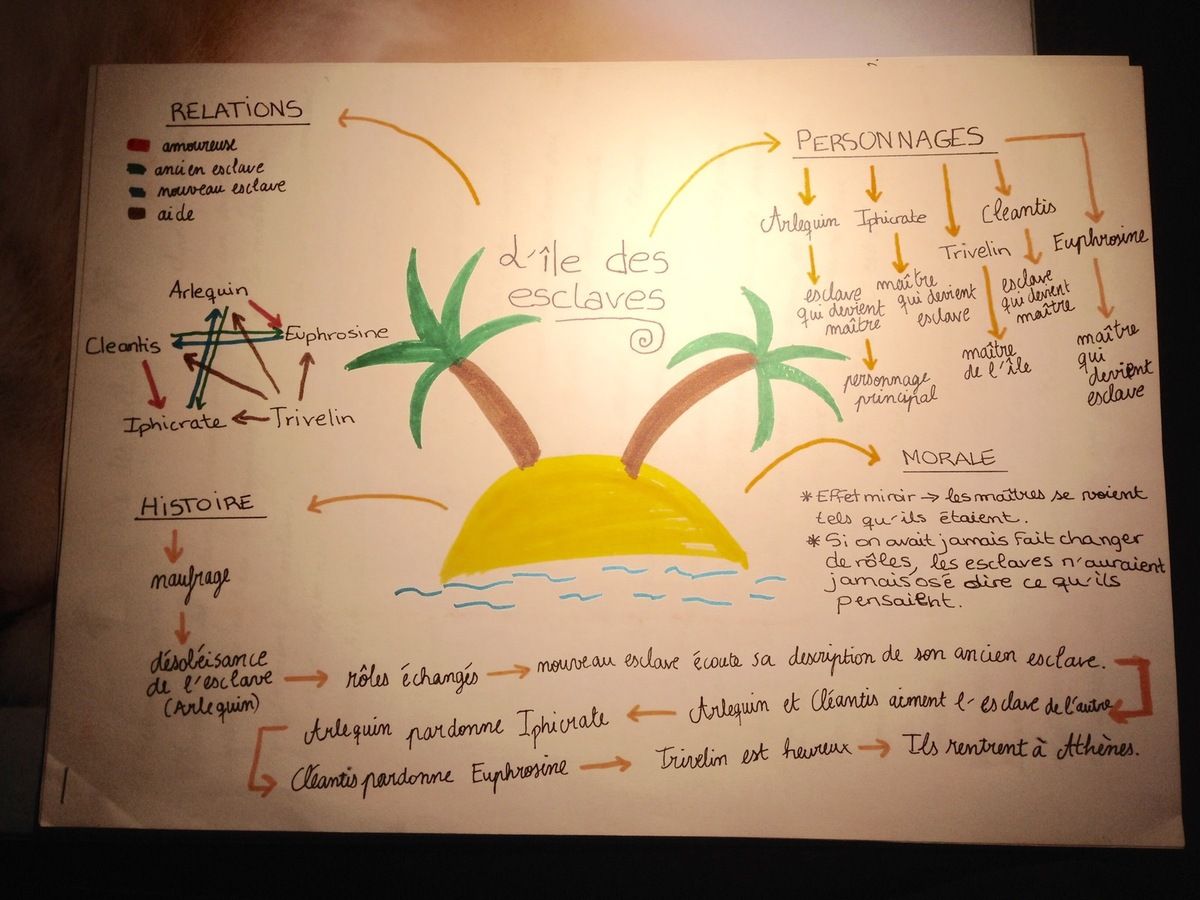 L'île des
esclaves
RELATIONS
amoureuse
ancien esclave
nouveau esclave
aide
Arlequin
Euphrosine
Cleantis
Iphicrate
Trivelin
PERSONNAGES
Arlequin
Iphicrate
Trivelin
Cleantis
Euphrosine
esclave
qui devient
maître
personnage
principal
maître
qui devient
esclave
maître
de l'île
esclave
qui devient
maître
maître
qui
devient
esclave
MORALE
* Effet miroir → les maîtres se voient
tels qu'ils étaient.
* Si on avait jamais fait changer
de rôles, les esclaves n'auraient
jamais osé dire ce qu'ils
pensaient.
HISTOIRE
naufrage
désobéisance
de l'esclave
(Arlequin)
rôles échangés
nouveau esclave écoute sa description de son ancien esclave.
Arlequin et Cléantis aiment l'esclave de l'autre
Arlequin pardonne Iphicrate
Cléantis pardonne Euphrosine
Trivelin est heureux
Ils rentrent à Athènes.